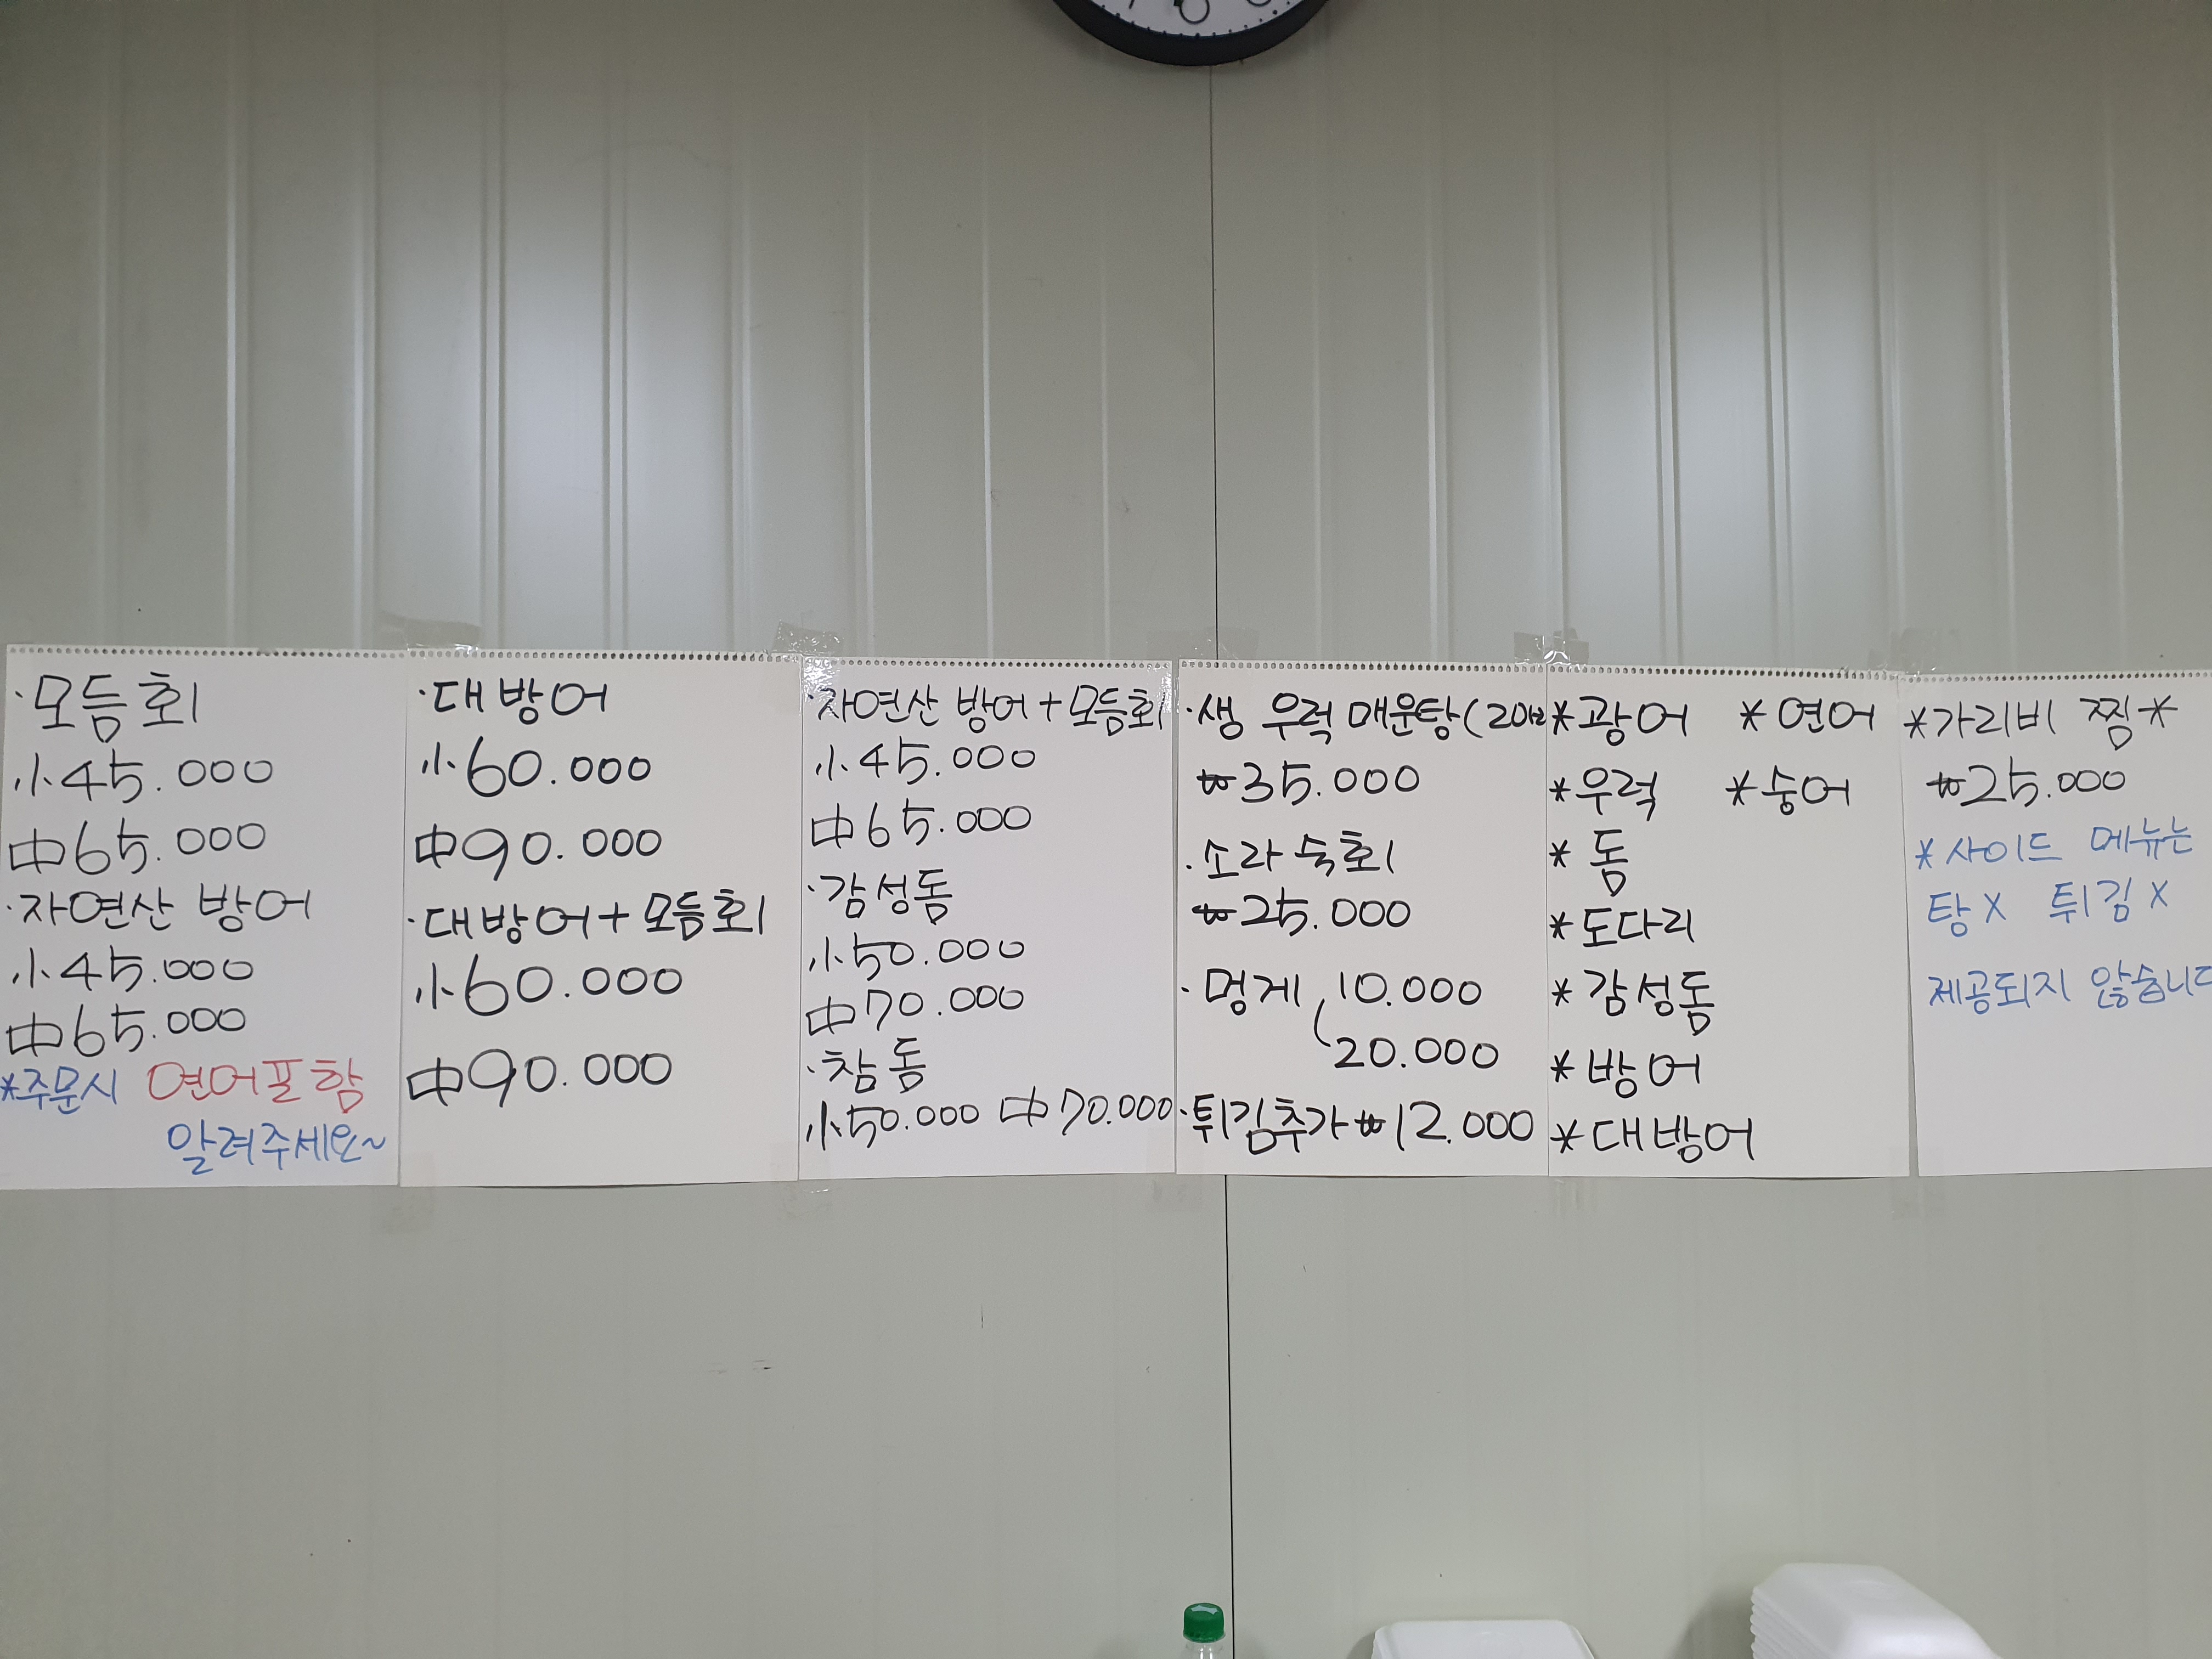 ·모듬회
小45.000
中65.000
·자연산 방어
小45.000
中65.000
*주문시 연어포함
알려주세요~
·대방어
小60.000
中90.000
·대방어+모듬회
小60.000
中90.000
·자연산 방어+모듬회
小45.000
中65.000
·감성돔
小50.000
中70.000
·참돔
小50.000 中70.000
·생 우럭 매운탕(2인
₩35.000
·소라 숙회
₩25.000
·멍게 10.000
20.000
·튀김추가 ₩12.000
*광어 *연어
*우럭 *숭어
*돔
*도다리
*감성돔
*방어
*대방어
*가리비 찜*
₩25.000
*사이드 메뉴는
탕X 튀김X
제공되지 않습니다